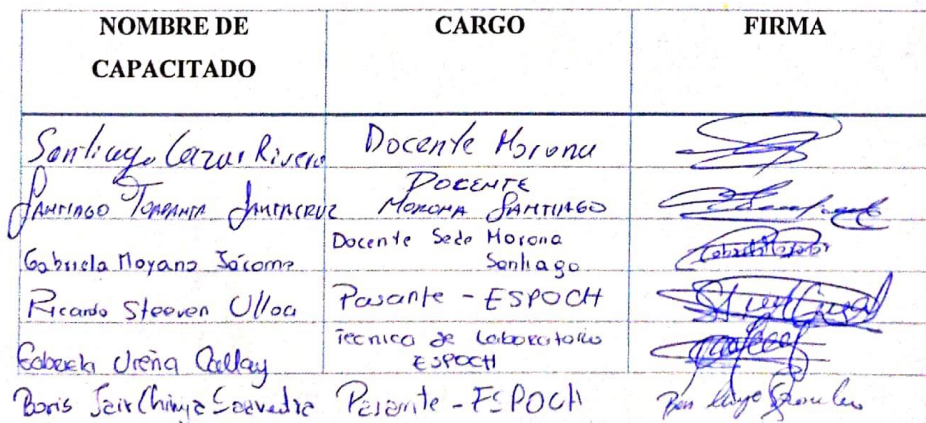 NOMBRE DE CAPACITADO CARGO FIRMA
Santiago Cazar Rivera Docente Morona
Santiago Toapanta Santacruz DOCENTE MORONA SANTIAGO
Gabriela Moyano Jácome Docente Sede Morona Santiago
Ricardo Steeven Ulloa Pasante - ESPOCH
Gabriela Ureña Callay Tecnica de Laboratorio ESPOCH
Boris Jair Chimga Saavedra Pasante - ESPOCH